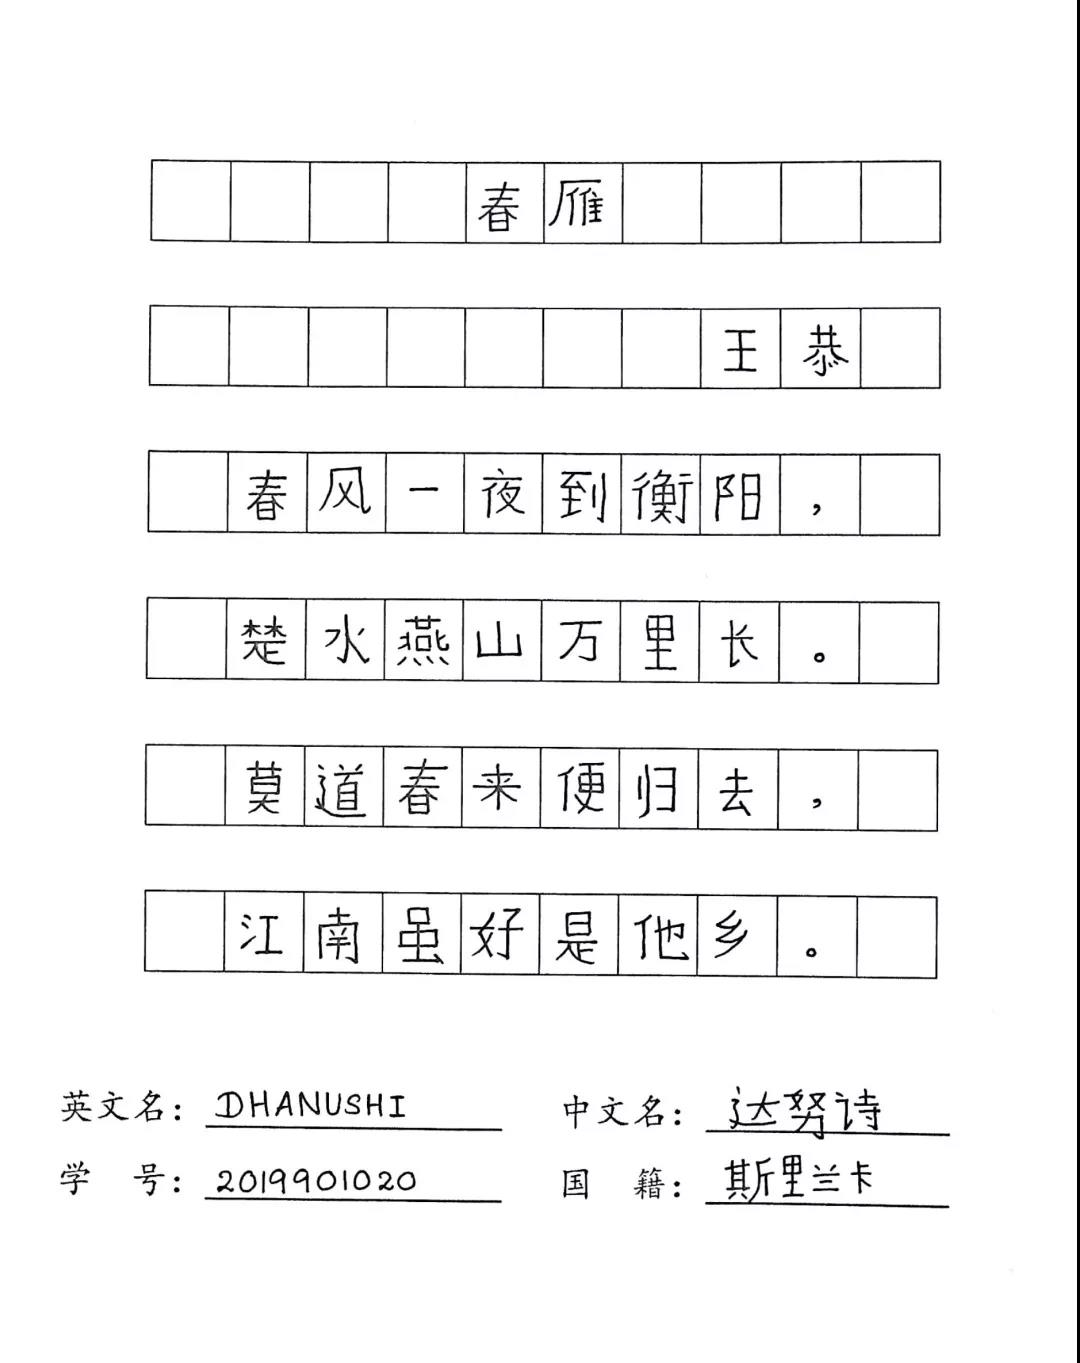 春雁
王恭
春风一夜到衡阳，
楚水燕山万里长。
莫道春来便归去，
江南虽好是他乡。
英文名：DHANUSHI 中文名：达努诗
学 号：2019901020 国 籍：斯里兰卡